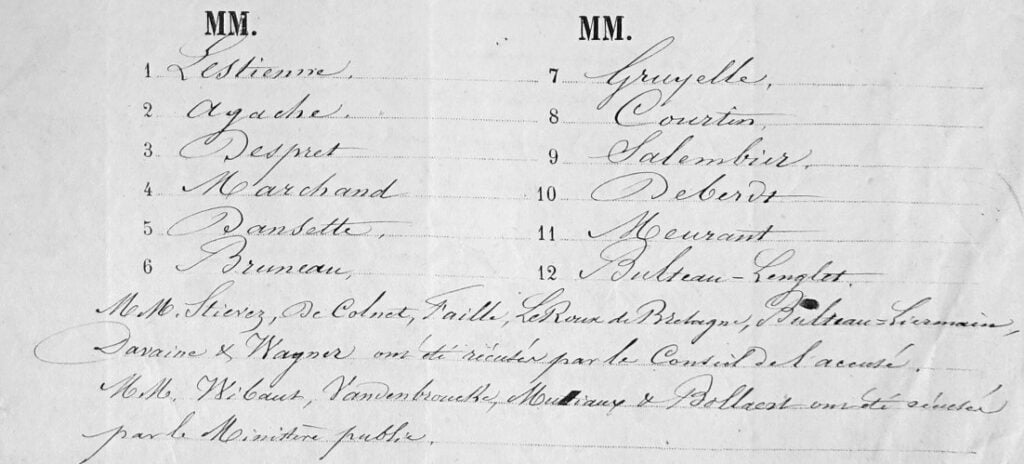 MM.
1 Lestienne.
2 Agache.
3 Despret
4 Marchand
5 Dansette.
6 Bruneau,
MM.
7 Gruyelle,
8 Courtin,
9 Salembier.
10 Deberdt
11 Meurant
12 Bulteau-Lenglet.
M.M. Stievez, De Colnet, Faille, Le Roux de Bretagne, Bulteau-
Davaine & Wagner ont été récusés par le Conseil de l'accusé.
M.M. Wibaut, Vandenbroucke, & Bollaert ont été récusés
par le Ministère public.